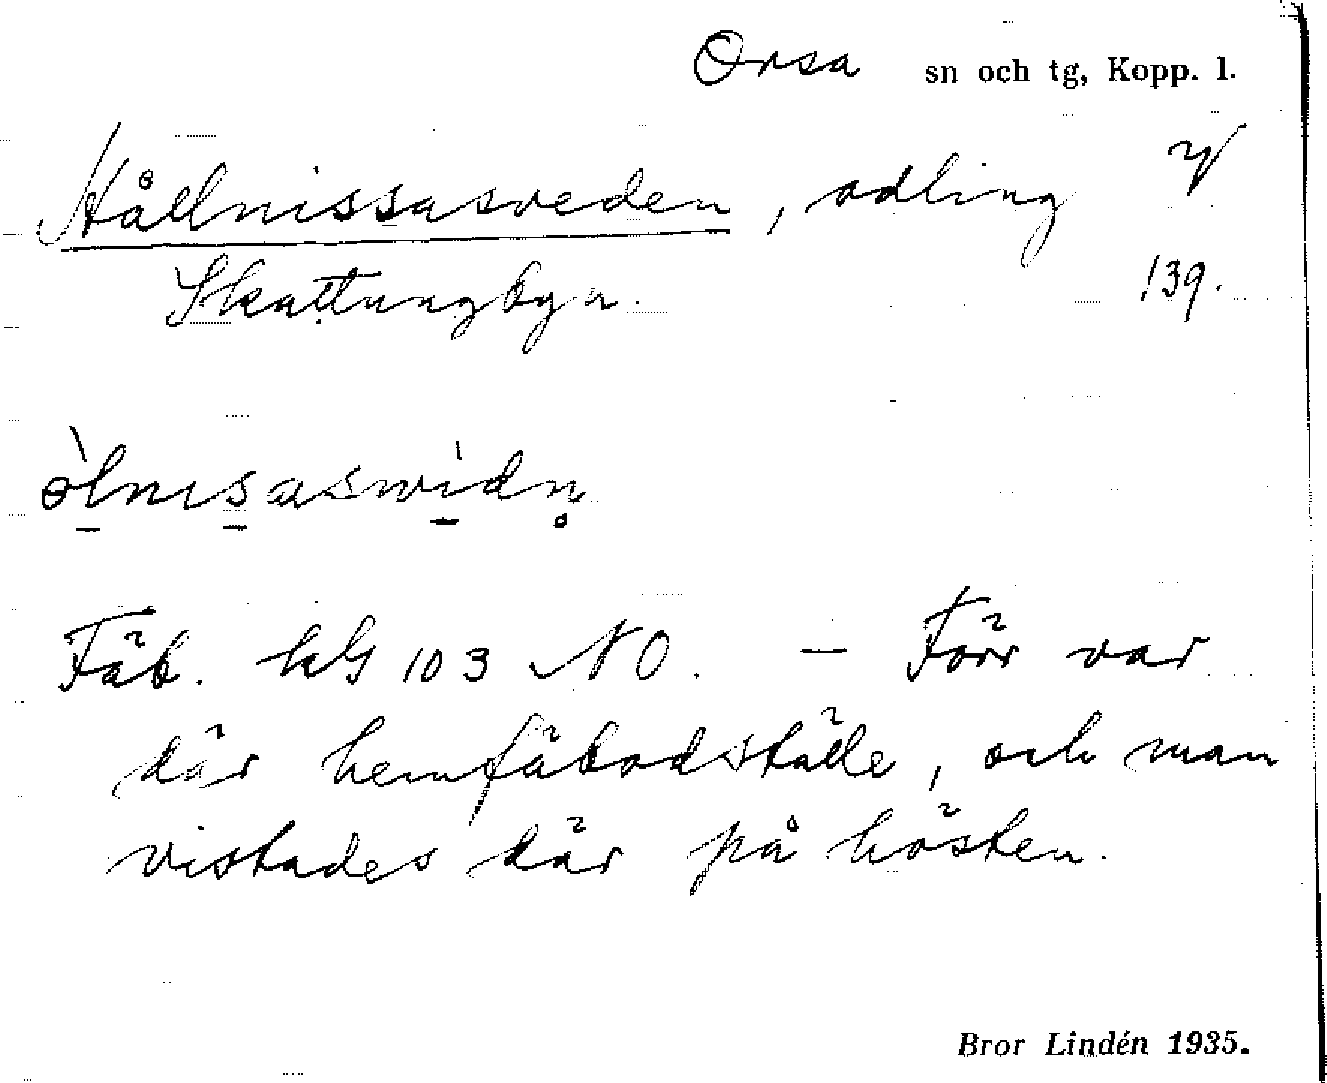 Orsa sn och tg, Kopp. l.
Hållnissasveden, odling
Skattungbyn. 139.
òlnisaswìdn̥
Fäb. 103 NO. — Förr var
där hemfäbodställe, och man
vistades där på hösten.
Bror Lindén 1935.